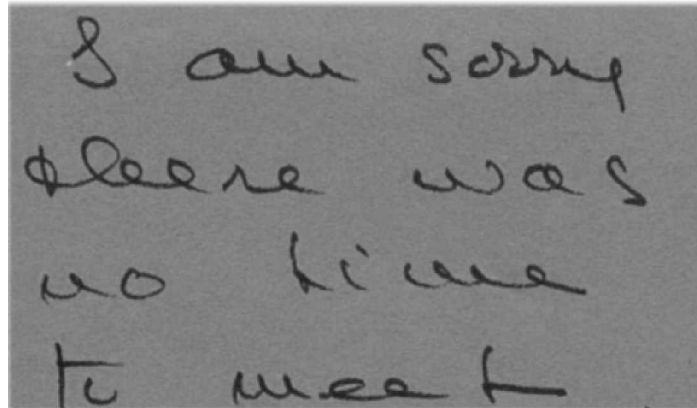 I am sorry
there was
no time
to meet